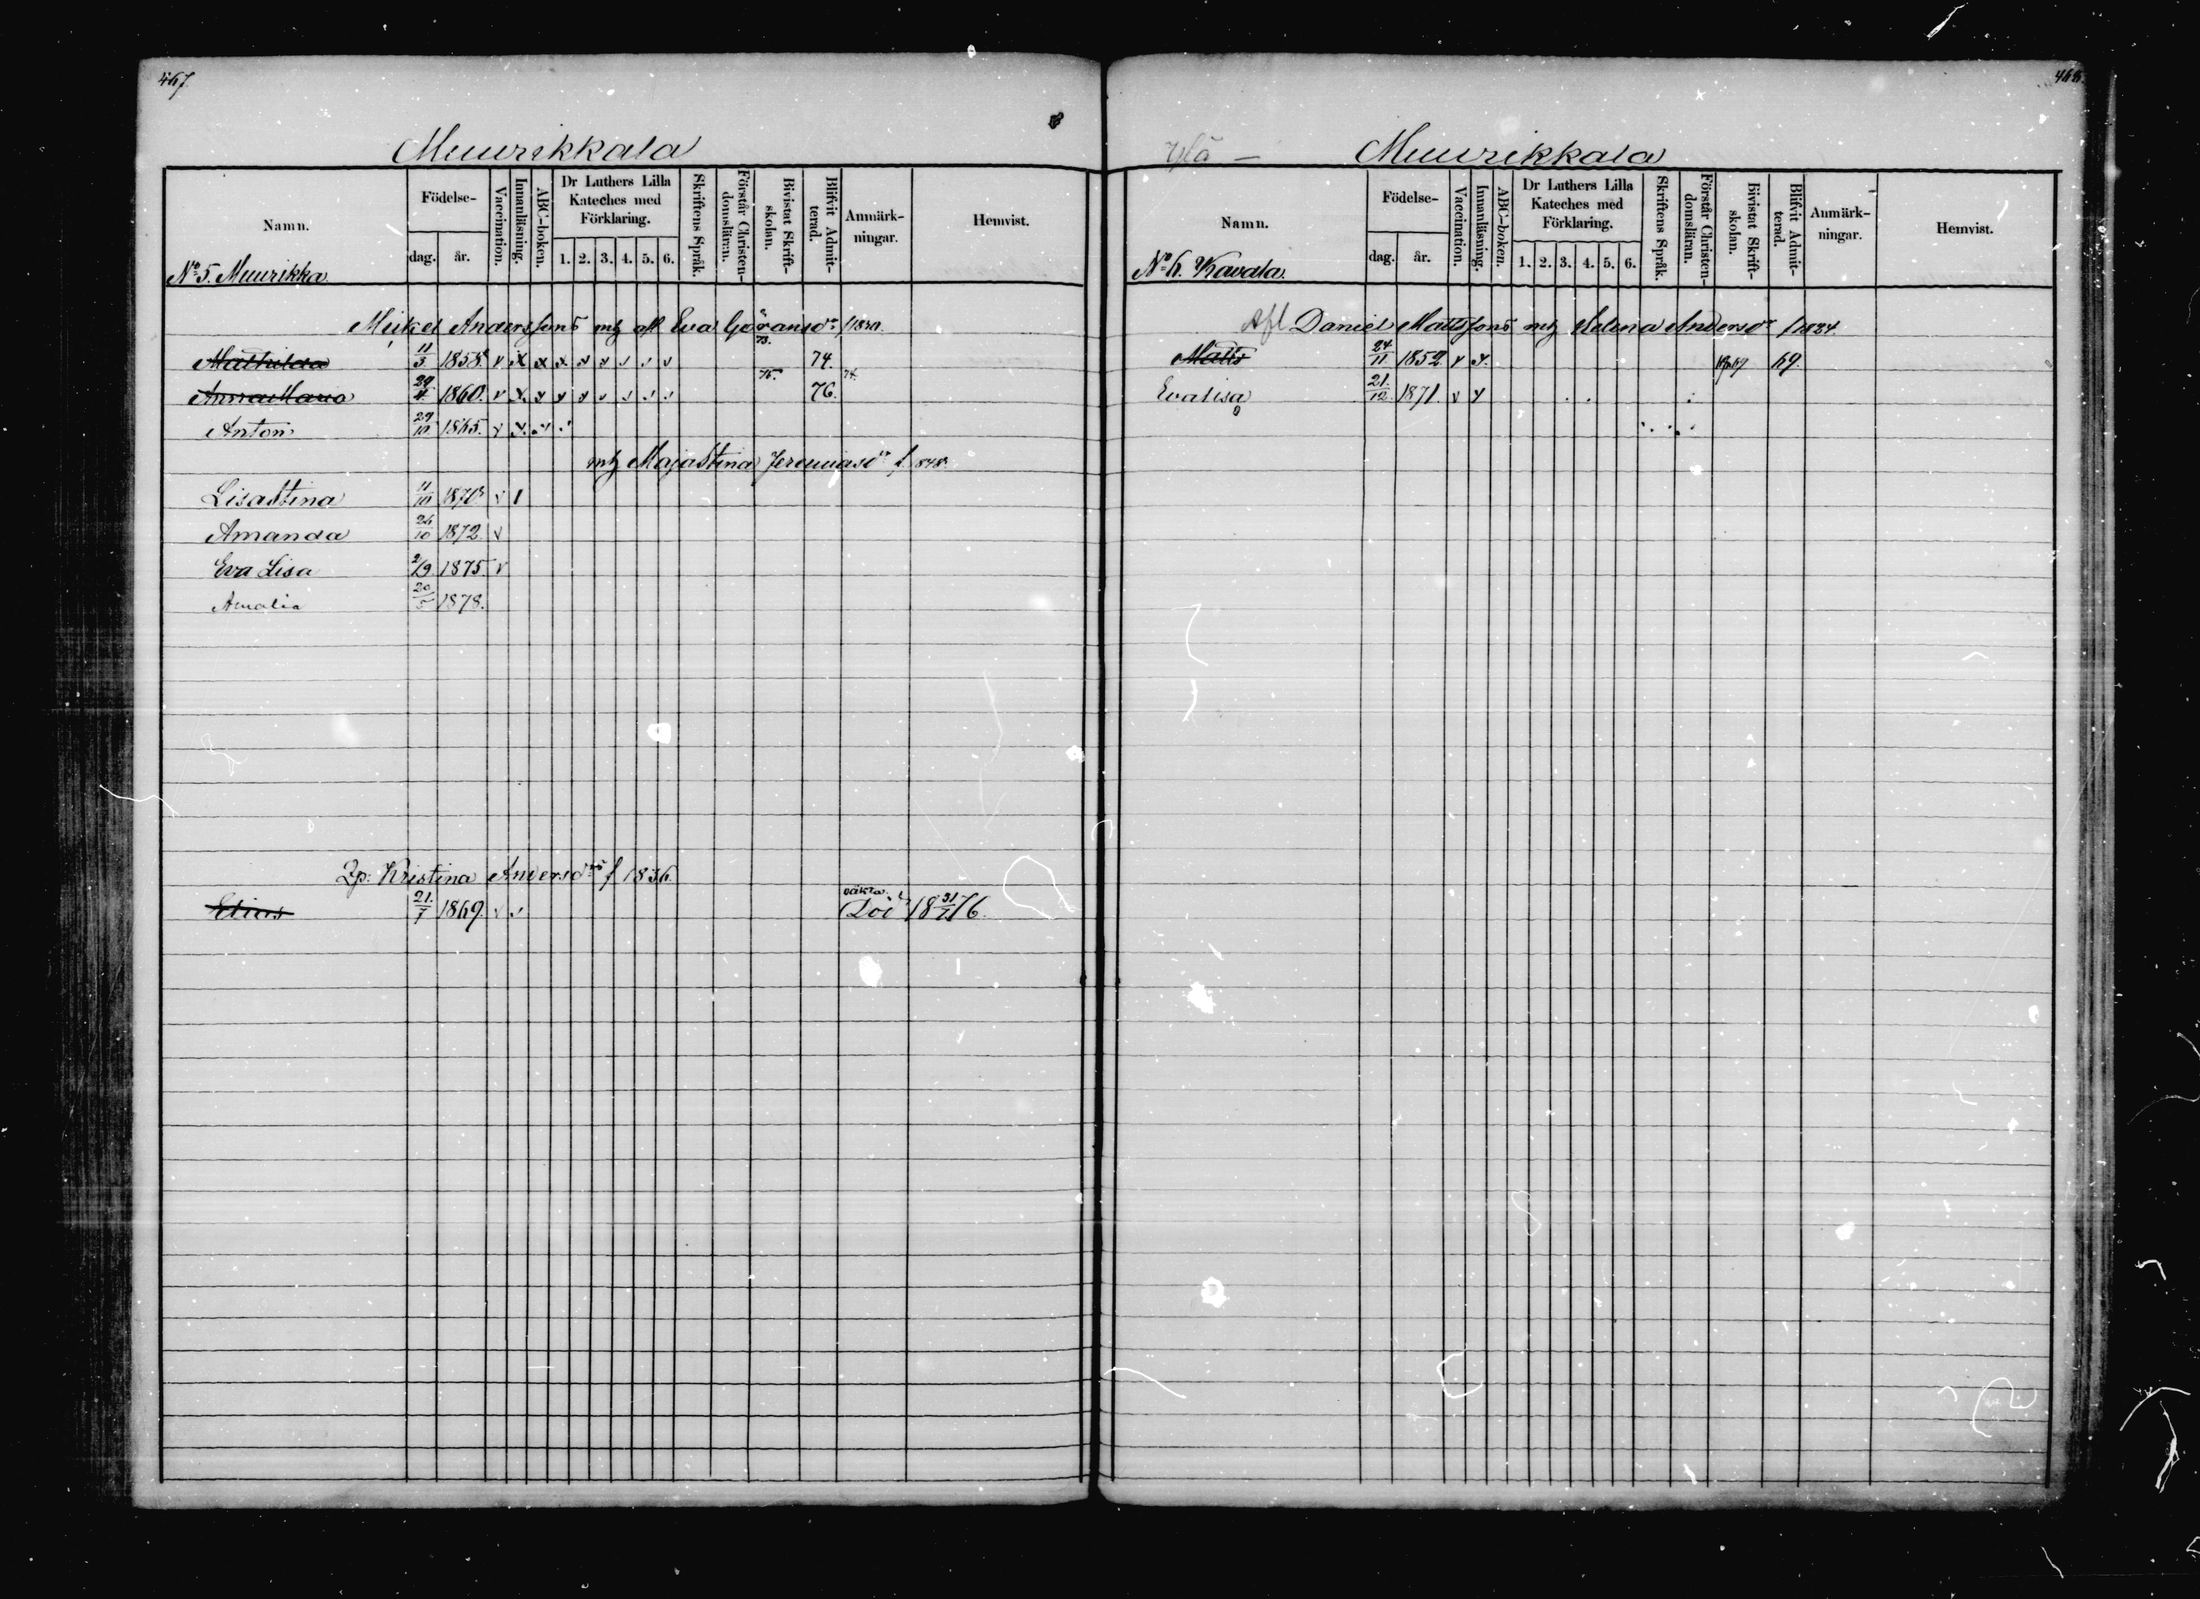 467.
Muurikkala
Namn. Födelse- dag. år. Vaccination. Innanläsning. ABC-boken. Dr Luthers Lilla Kateches med Förklaring. 1. 2. 3. 4. 5. 6. Skriftens Språk. Förstår Christen-domsläran. Bivistat Skrift-skolan. Blifvit Admit-terad. Anmärk-ningar. Hemvist.
No 5. Muurikka.
Mickel Anderssons mh afl Eva Göransdr f 1830.
Mathilda 11/3 1858 v x x x v v v v v 73. 74.
Anna Maria 29/4 1860. v x v v v v v v v 75. 76. 74.
Anton 29/10 1865. v x
mh Maja Stina Jeremiasdr f. 848.
Lisa Stina 11/10 1870 v 1
Amanda 26/10 1872. v
Eva Lisa 2/9 1875. v
Amalia 20/5 1878.
Kristina Andersdrs f 1836.
Elias 21/7 1869. v v Död 18 31/7 76.
468.
Ylä —
Muurikkala
Namn. Födelse- dag. år. Vaccination. Innanläsning. ABC-boken. Dr Luthers Lilla Kateches med Förklaring. 1. 2. 3. 4. 5. 6. Skriftens Språk. Förstår Christen-domsläran. Bivistat Skrift-skolan. Blifvit Admit-terad. Anmärk-ningar. Hemvist.
No 6. Kavala.
Afl Daniel Mattssons mh Helena Andersdr f 1824.
Matts 24/11 1852 v x. 69.
Evalisa 21/12 1871. v v